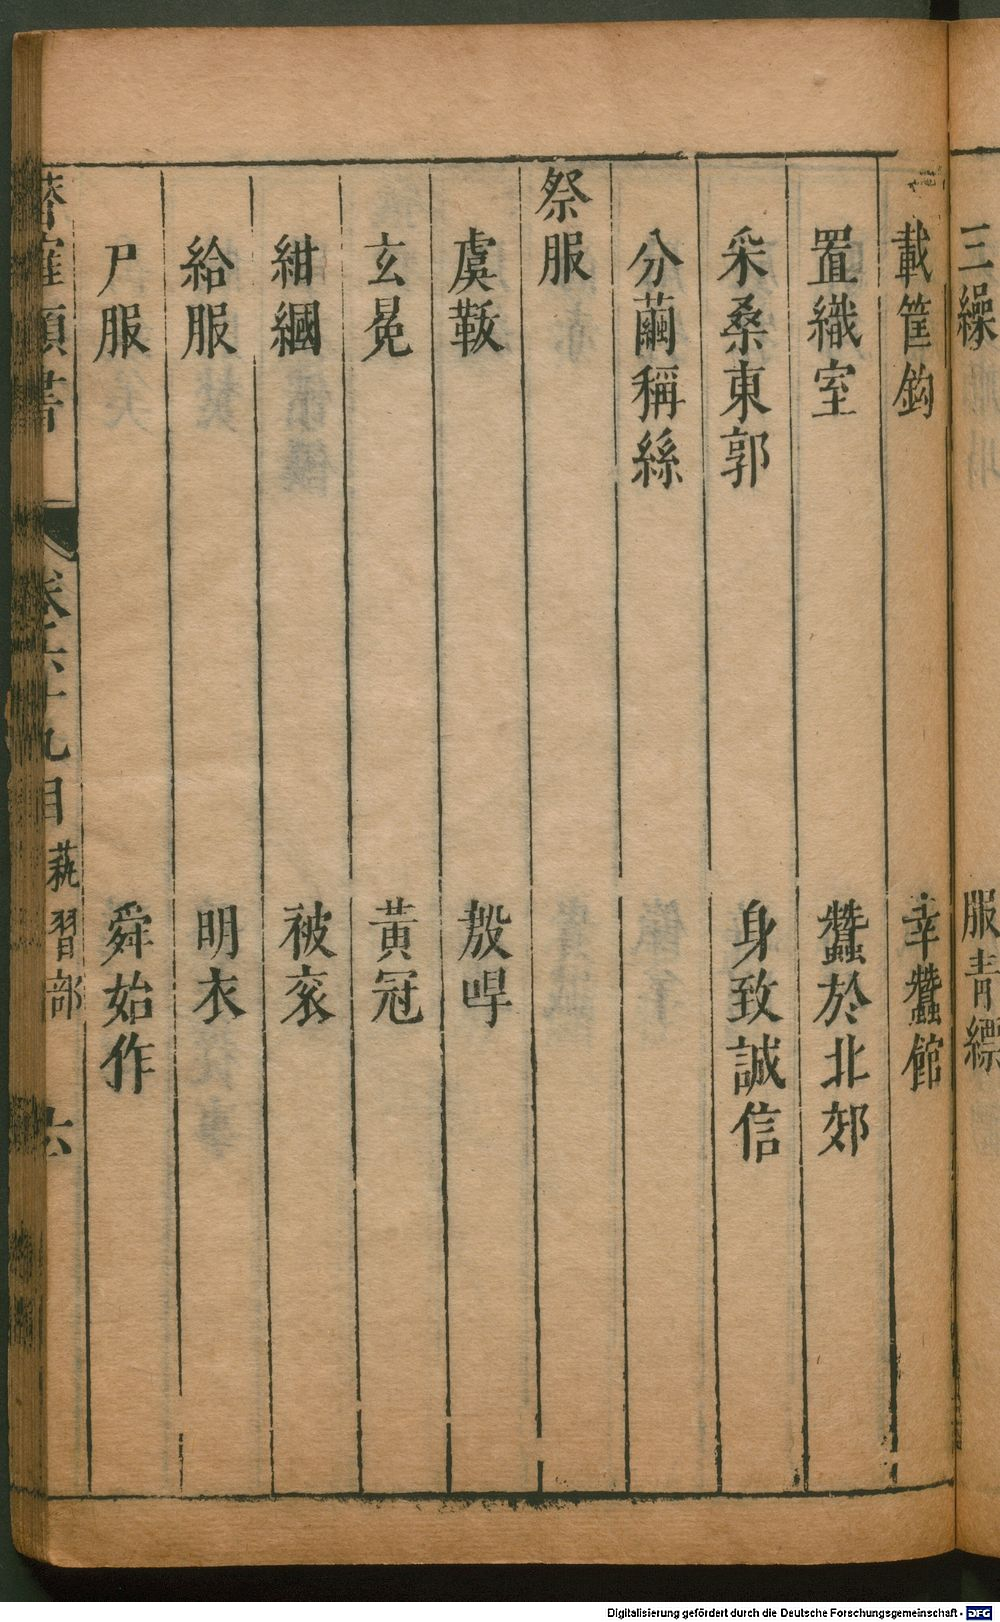 三繅　服青縹
載筐鈎　幸蠶館
置織室　蠶於北郊
采桑東郭　身致誠信
分繭稱絲
祭服
虞韍　殷冔
玄冕　黃冠
紺繭　被衮
給服　明衣
尸服　舜始作
卷六十九目 蓺習部 六
Digitalisierung gefördert durch die Deutsche Forschungsgemeinschaft - DFG